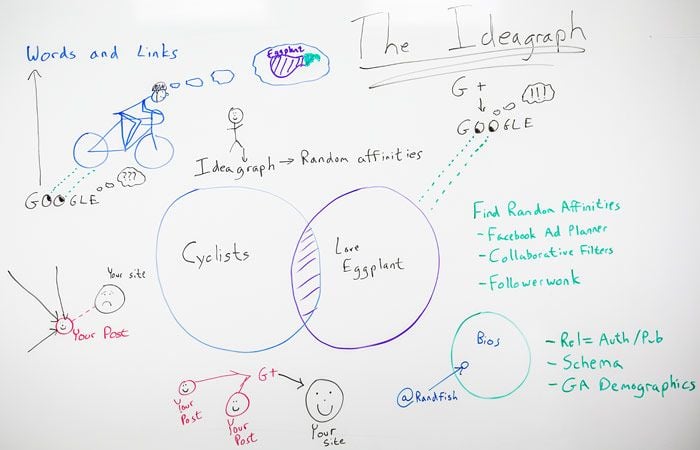 The Ideagraph
Words and Links
Eggplant
G+
!!!
GOOGLE
Ideagraph → Random affinities
???
GOOGLE
Cyclists
Love
Eggplant
Find Random Affinities
- Facebook Ad Planner
- Collaborative Filters
- Followerwonk
Your site
Your Post
Bios
@Randfish
- Rel= Auth/Pub
- Schema
- GA Demographics
G+
Your
Post
Your
Post
Your
site